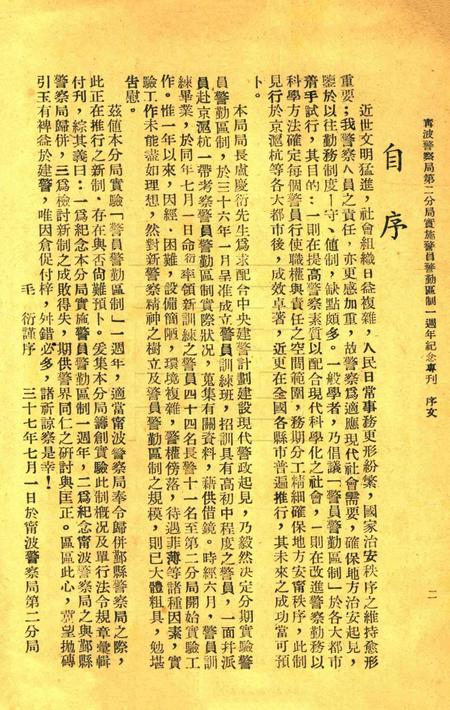 甯波警察局第二分局實施警員警勤區制一週年紀念專刊　序文
二
自序
近世文明猛進，社會組織日益複雜，人民日常事務更形紛繁，國家治安秩序之維持愈形
重要；我警察人員之責任，亦更感加重，故警察爲適應現代社會需要，確保地方治安起見，
鑒於以往勤務制度—守、値制，缺點頗多。一般學者，乃倡議「警員警勤區制」於各大都市
着手試行，其目的：一則在提高警察素質以配合現代科學化之社會，一則在改進警察勤務以
科學方法確定每個警員行使職權與責任之空間範圍，務期分工精細確保地方安甯秩序，此制
見行於京滬杭等各大都市後，成效卓著，近更在全國各縣市普遍推行，其未來之成功當可預
卜。
本局局長盧慶衍先生爲求配合中央建警計劃建設現代警政起見，乃毅然决定分期實驗警
員警勤區制，於三十六年一月呈准成立警員訓練班，招訓具有高初中程度之警員，一面幷派
員赴京滬杭一帶考察警員警勤區制實際狀况，蒐集有關資料，藉供借鏡。時經六月，警員訓
練畢業，於同年七月一日命衍率領新訓練之警員四十四名長警十一名至第二分局開始實驗工
作。惟一年以來，因經費困難，設備簡陋，環境複雜，警權傍落，待遇菲薄等諸種因素，實
驗工作未能盡如理想，然對新警察精神之樹立及警員警勤區制之規模，則已大體粗具，勉堪
告慰。
茲値本分局實驗「警員警勤區制」一週年，適當甯波警察局奉令歸併鄞縣警察局之際，
此正在推行之新制，存在與否尙難預卜。爰集本分局籌創實驗此制概况及單行法令規章彙輯
付刊，綜其義曰：一爲紀念本分局實施警員警勤區制一週年，二爲紀念甯波警察局之與鄞縣
警察局歸併，三爲檢討新制之成敗得失，期供警界同仁之研討與匡正。區區此心，蘄望拋磚
引玉有裨益於建警，唯因倉促付梓，舛錯必多，諸祈諒察是幸！
毛　衍謹序　　三十七年七月一日於甯波警察局第二分局